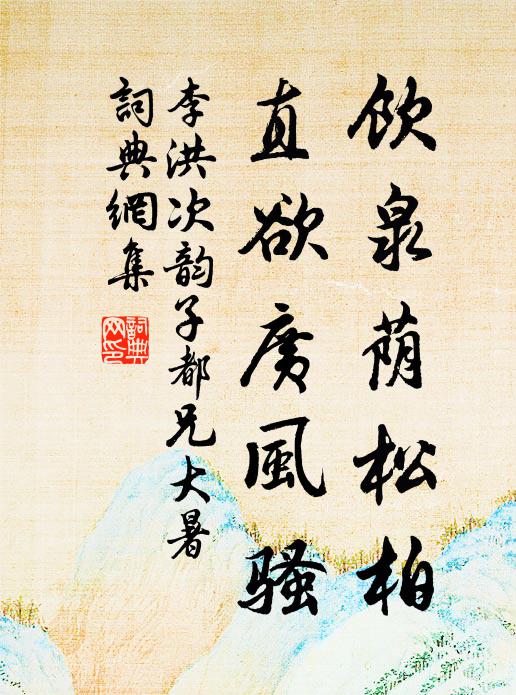 飲泉荫松柏
直欲賡風騷
李洪次韵子都兄大暑
詞典網集
詞典網印